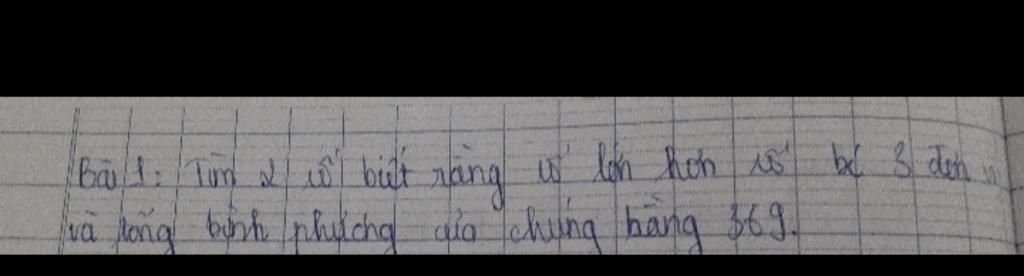 Bài 1: Tìm 2 số biết rằng số lớn hơn số bé 3 đơn
và tổng bình phương của chúng bằng 369.